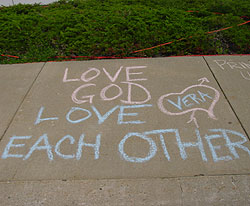 LOVE
GOD
LOVE
VERA
EACH OTHER